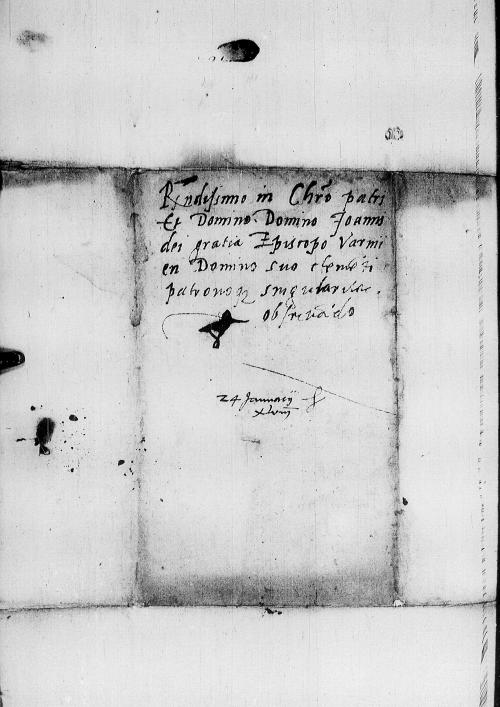 Rndissimo in Chro patri
Et Domino Domino Joanni
dei gratia Episcopo Varmi
en Domino suo clemēti
patronoq singulariter
obseruādo
24 Januarij
xlviij